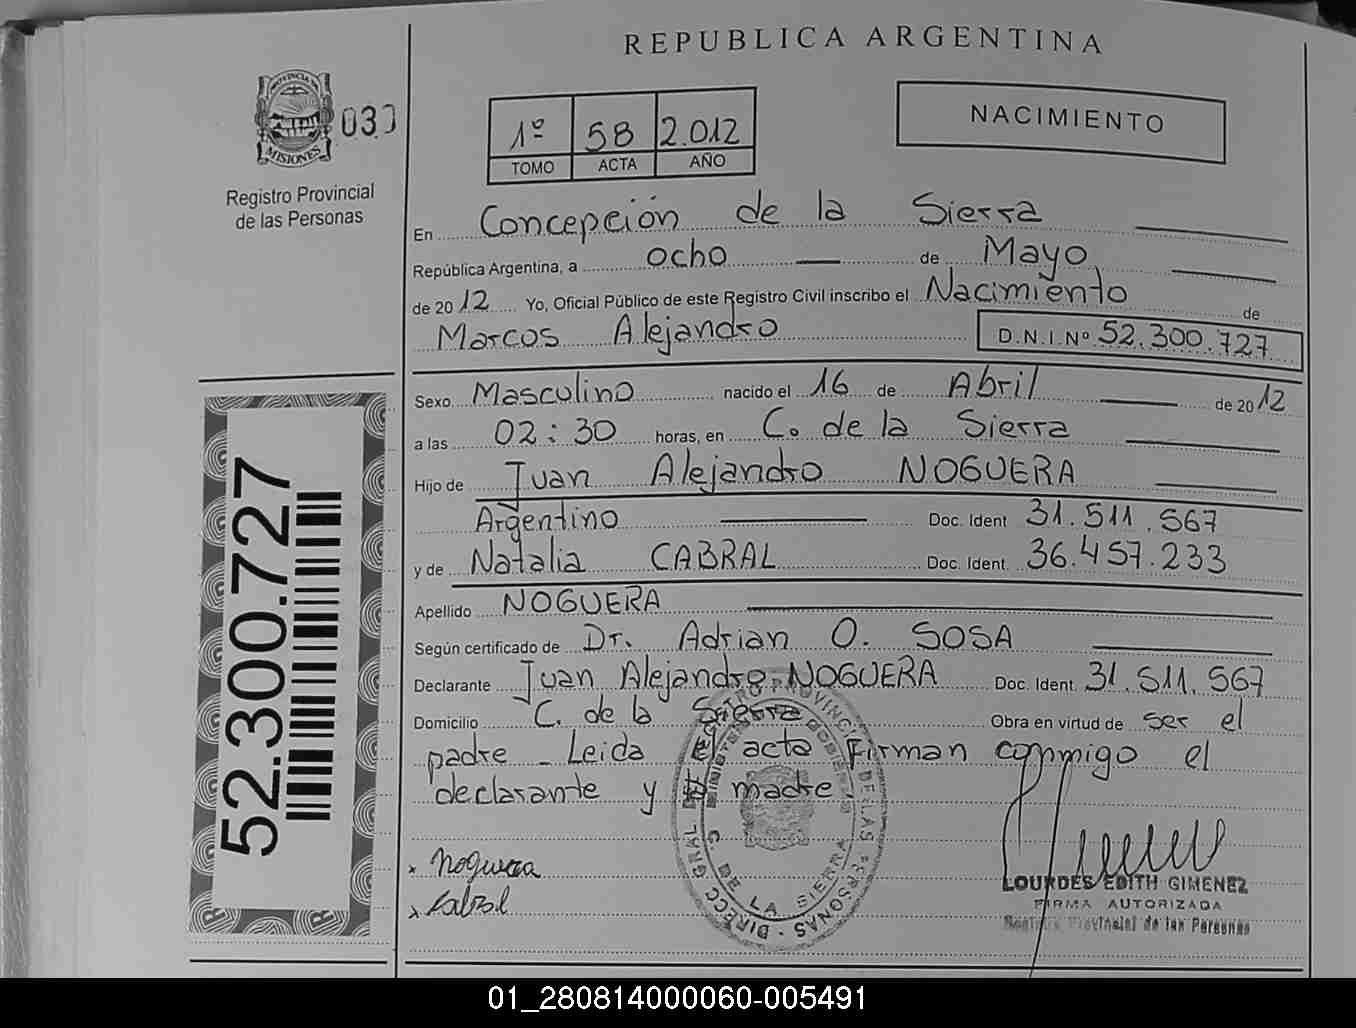 REPUBLICA ARGENTINA
PROVINCIA
MISIONES
Registro Provincial
de las Personas
1º 58 2.012
TOMO ACTA AÑO
NACIMIENTO
En Concepción de la Sierra
República Argentina, a ocho de Mayo
de 2012 Yo, Oficial Público de este Registro Civil inscribo el Nacimiento de
Marcos Alejandro D.N.I. Nº 52.300.727
Sexo Masculino nacido el 16 de Abril de 2012
a las 02:30 horas, en C. de la Sierra
Hijo de Juan Alejandro NOGUERA
Argentino Doc. Ident 31.511.567
y de Natalia CABRAL Doc. Ident. 36.457.233
Apellido NOGUERA
Según certificado de Dr. Adrian O. SOSA
Declarante Juan Alejandro NOGUERA Doc. Ident. 31.511.567
Domicilio C. de la Sierra Obra en virtud de ser el
padre - Leida el acta Firman conmigo el
declarante y la madre
Noguera
Cabral
52.300.727
DIRECC GRAL DEL REGISTRO PROVINCIAL DE LAS PERSONAS
MINISTERIO DE GOBIERNO
C. DE LA SIERRA
LOURDES EDITH GIMENEZ
FIRMA AUTORIZADA
Registro Provincial de las Personas
01_280814000060-005491